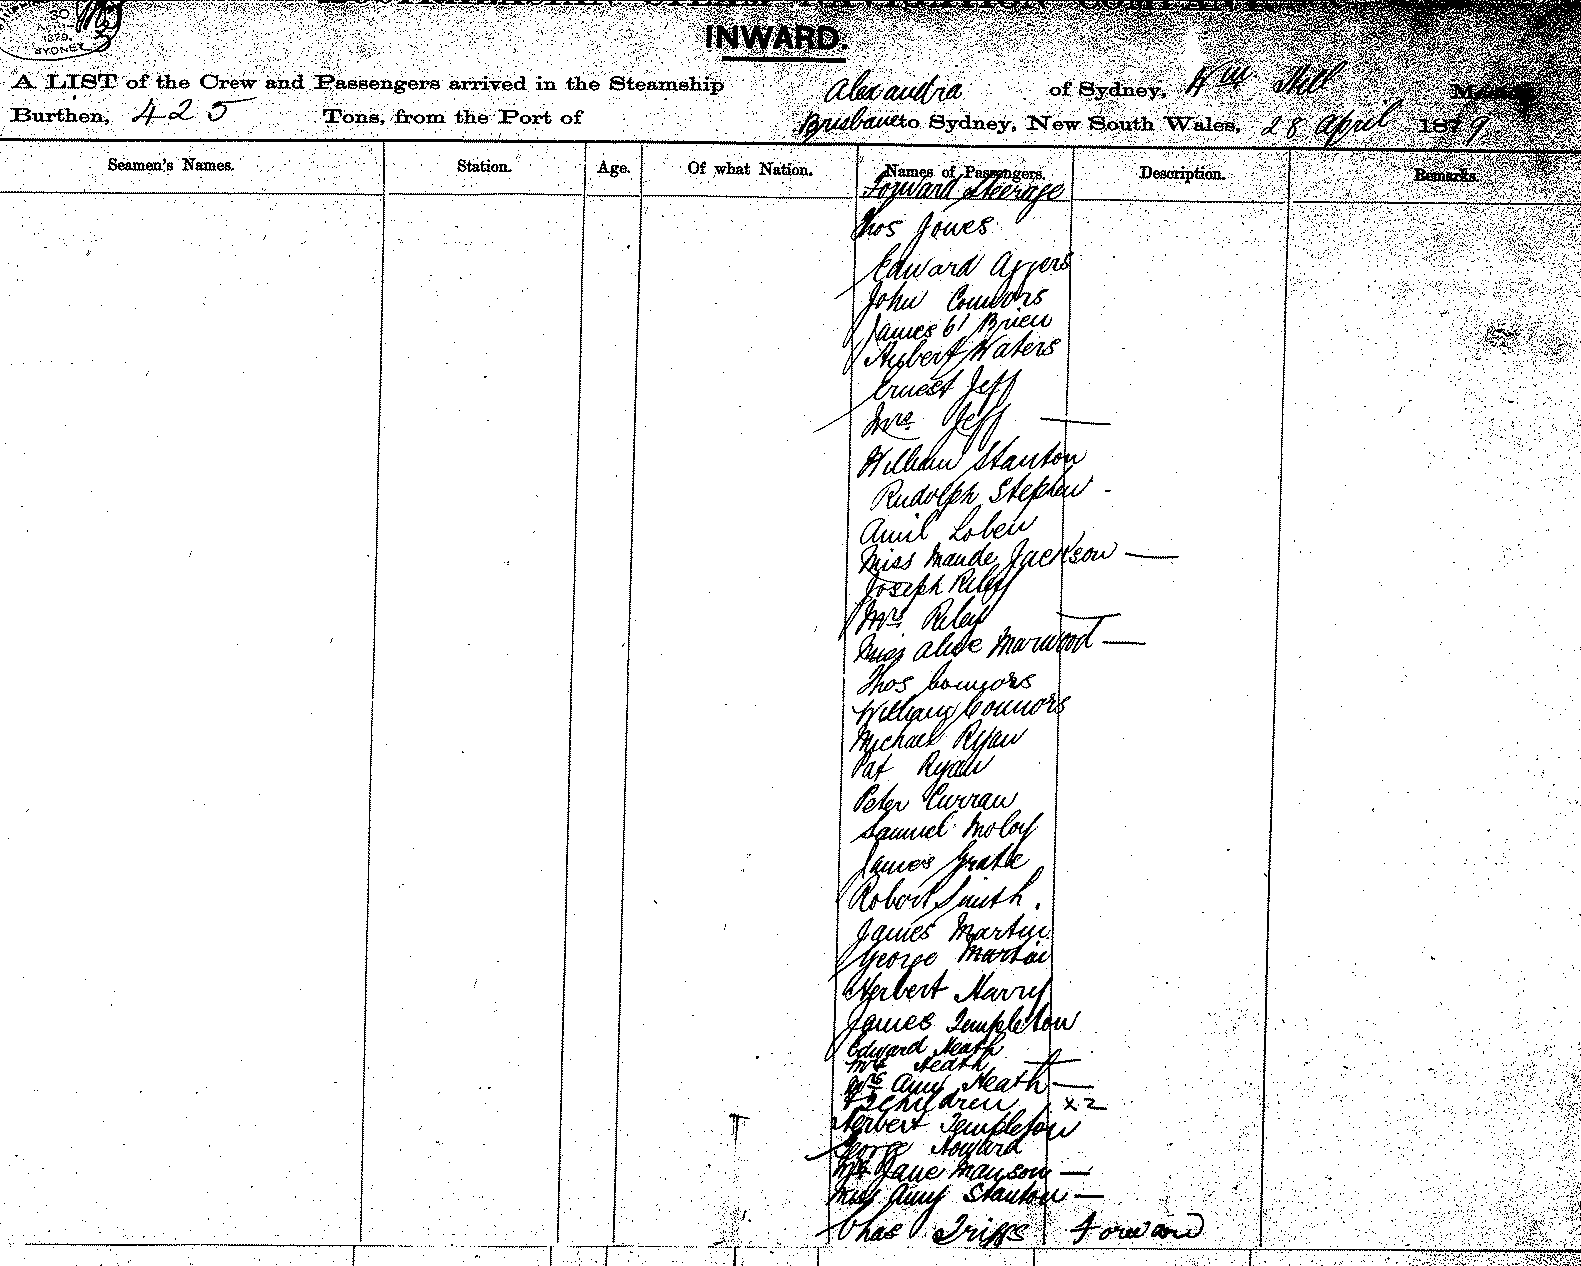 1879
SYDNEY
INWARD.
A LIST of the Crew and Passengers arrived in the Steamship Alexandra of Sydney, Wm Hill
Burthen, 425 Tons, from the Port of Brisbane to Sydney, New South Wales, 28 April 1879
Seamen's Names. Station. Age. Of what Nation. Names of Passengers. Description. Remarks.
Forward Steerage
Thos Jones
Edward
John Connors
James O'Brien
Hubert Waters
Ernest Jeff
Mrs Jeff —
William Stanton
Rudolph Stephen -
Amil Loben
Miss Maude Jackson —
Joseph Riley
Mrs Riley —
Miss Alice Marwood —
Thos Connors
William Connors
Michael Ryan
Pat Ryan
Peter Curran
Samuel Moloy
James
Robert Smith.
James Martin
George Martin
Herbert Harry
James Templeton
Edward Heath
Mrs Heath —
Amy Heath —
2 children x 2
Herbert Templeton
George Howard
Jane Manson —
Miss Amy Stanton —
Chas Triggs Forward